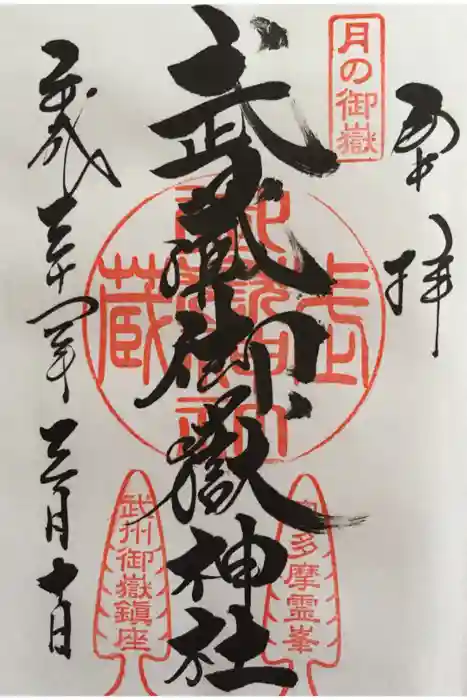 奉拝
月の御嶽
武蔵御嶽神社
平成三十一年三月十日
奥多摩霊峯
武州御嶽鎮座